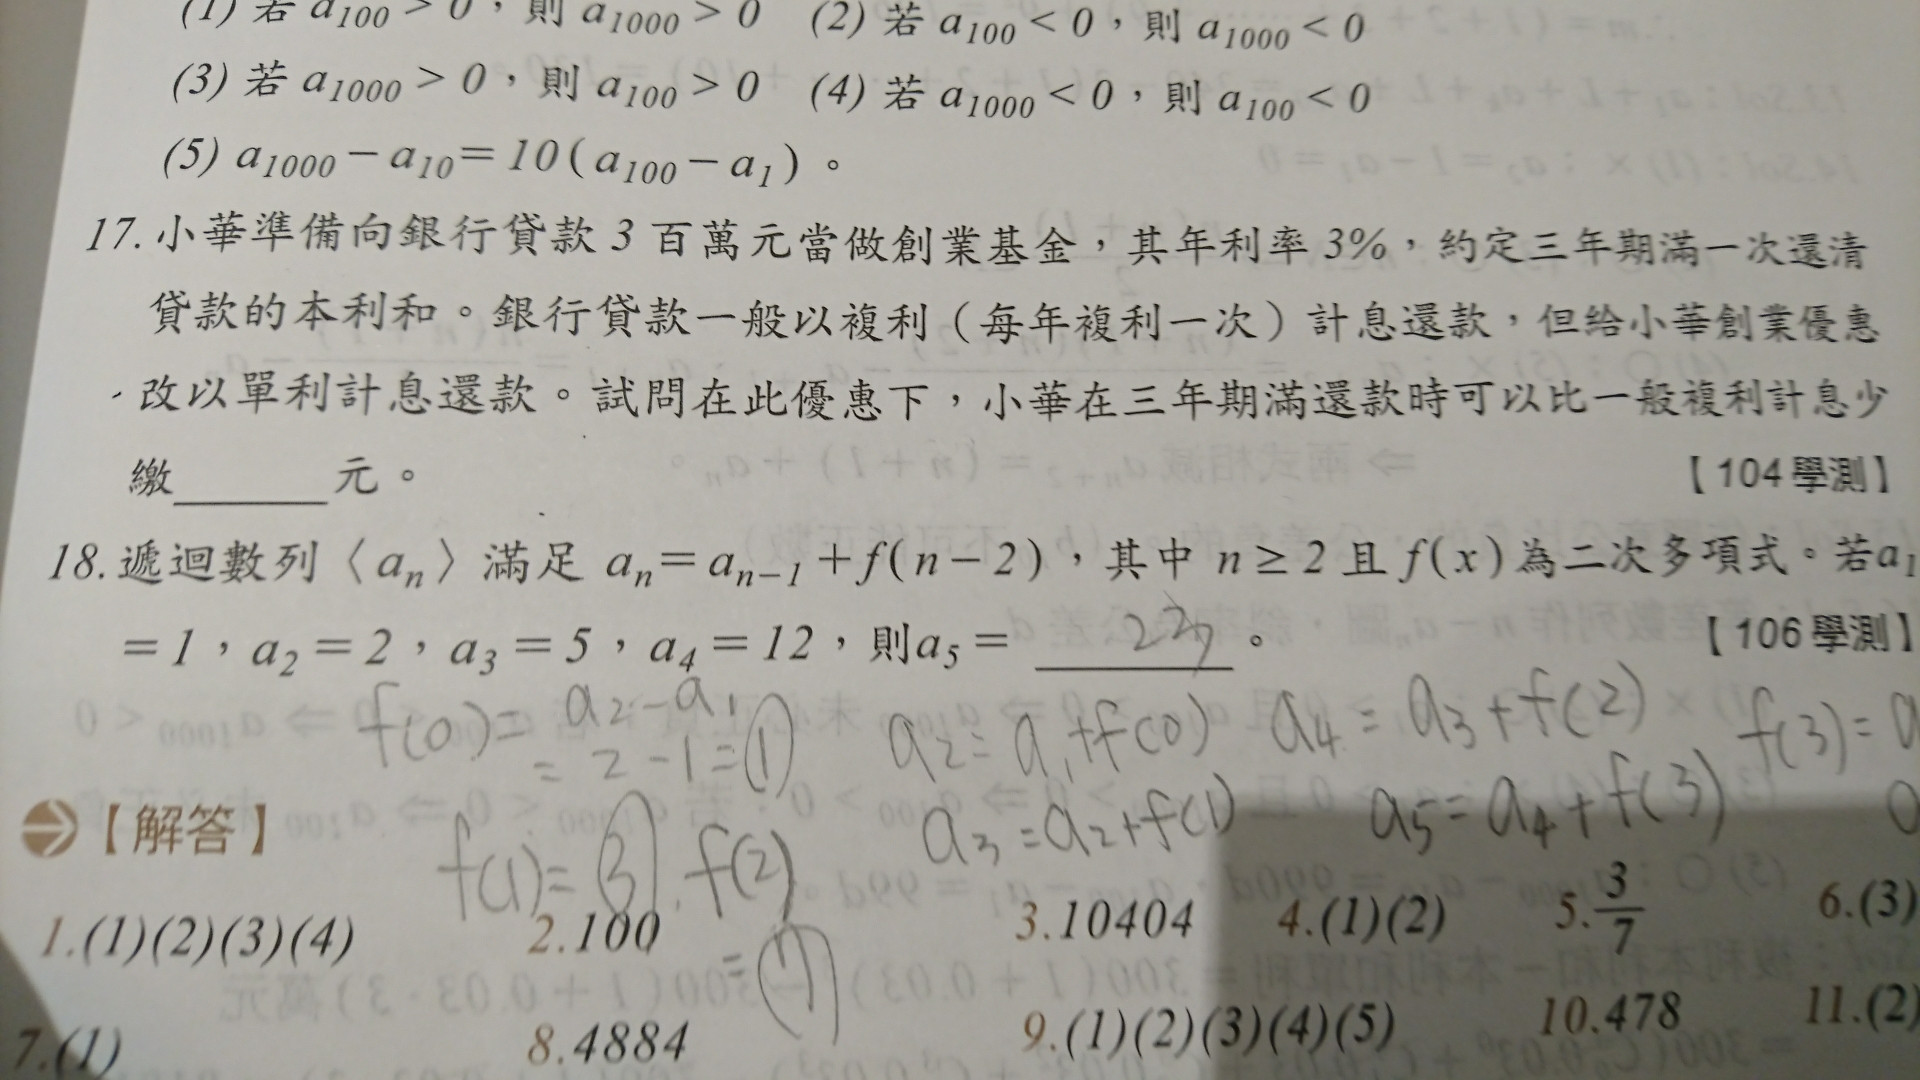 (1) 若 a100 > 0，則 a1000 > 0 (2) 若 a100 < 0，則 a1000 < 0
(3) 若 a1000 > 0，則 a100 > 0 (4) 若 a1000 < 0，則 a100 < 0
(5) a1000 − a10 = 10 ( a100 − a1 )。
17. 小華準備向銀行貸款 3 百萬元當做創業基金，其年利率 3%，約定三年期滿一次還清
貸款的本利和。銀行貸款一般以複利（每年複利一次）計息還款，但給小華創業優惠
改以單利計息還款。試問在此優惠下，小華在三年期滿還款時可以比一般複利計息少
繳______元。 【104 學測】
18. 遞迴數列〈an〉滿足 an = an−1 + f(n − 2)，其中 n ≥ 2 且 f(x) 為二次多項式。若a1
= 1，a2 = 2，a3 = 5，a4 = 12，則a5 = ______。 【106 學測】
f(0) = a2 − a1 a2 = a1 + f(0) a4 = a3 + f(2) f(3) = a
= 2 − 1 = 1
【解答】 a3 = a2 + f(1) a5 = a4 + f(3)
f(1) = 3, f(2)
= 7
1.(1)(2)(3)(4) 2.100 3.10404 4.(1)(2) 5.3/7 6.(3)
7.(1) 8.4884 9.(1)(2)(3)(4)(5) 10.478 11.(2)